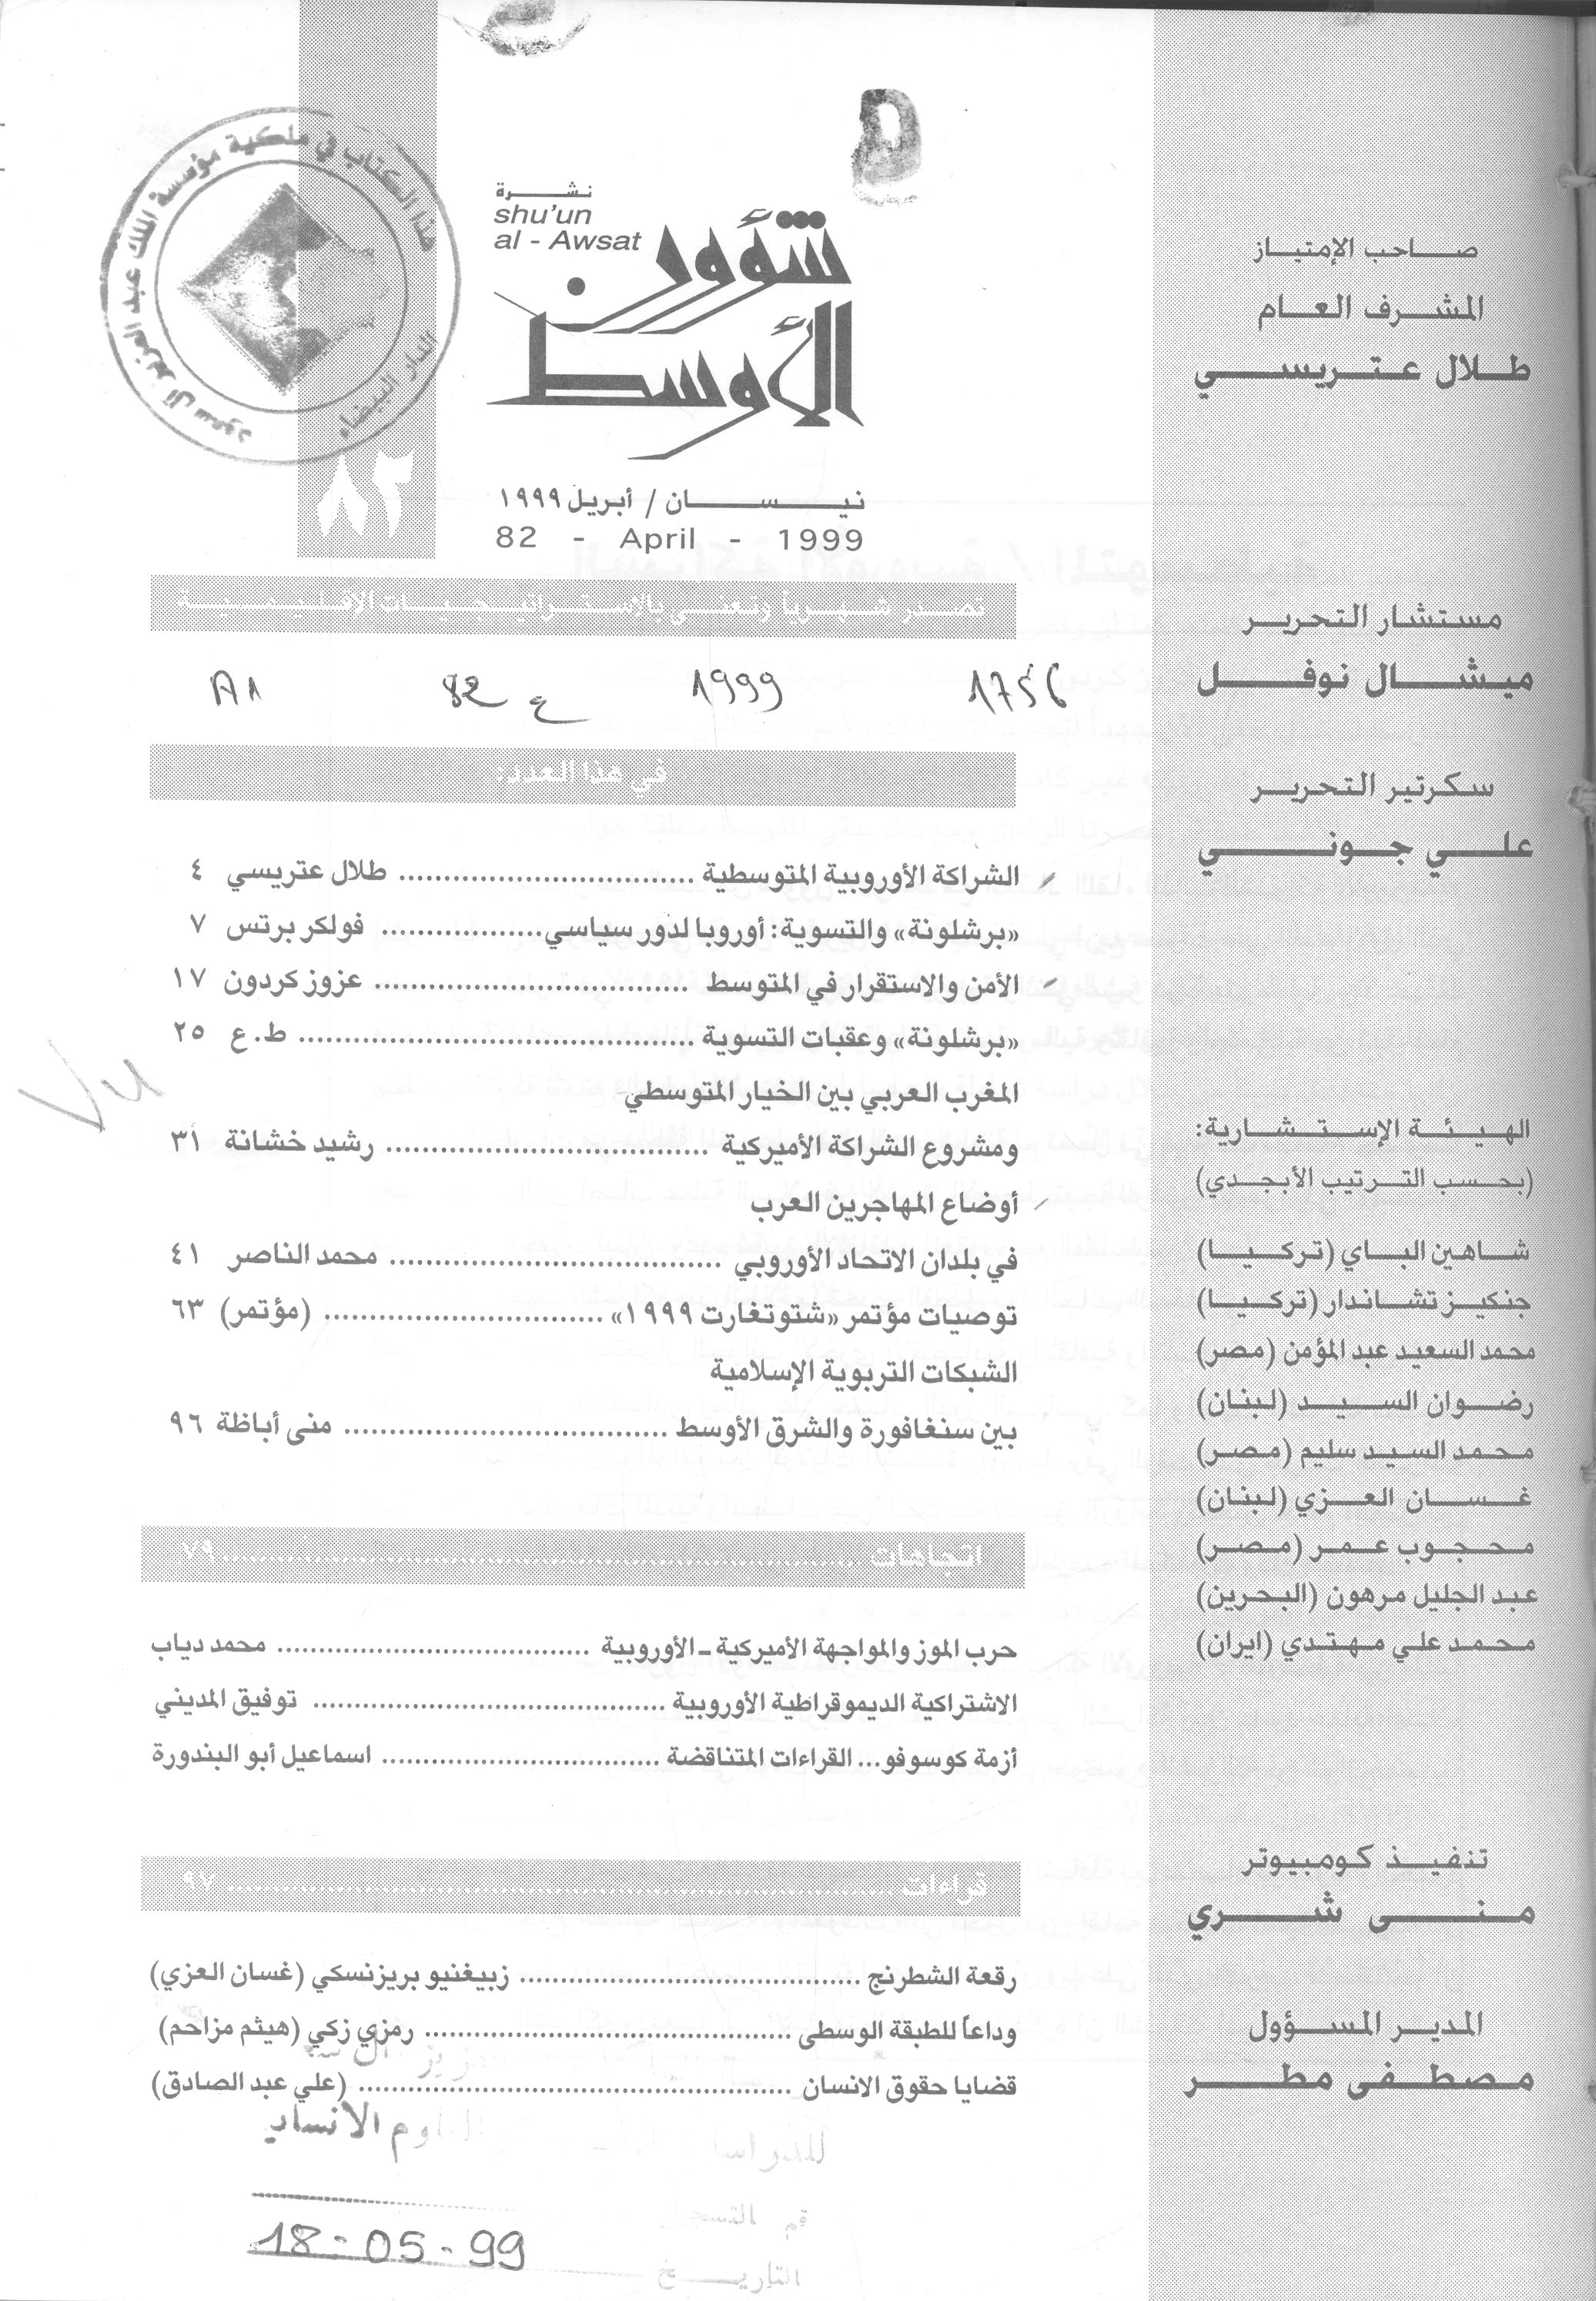 صاحب الإمتياز
المشرف العام
طلال عتريسي
مستشار التحرير
ميشال نوفل
سكرتير التحرير
علي جوني
الهيئة الإستشارية:
(بحسب الترتيب الأبجدي)
شاهين الباي (تركيا)
جنكيز تشاندار (تركيا)
محمد السعيد عبد المؤمن (مصر)
رضوان السيد (لبنان)
محمد السيد سليم (مصر)
غسان العزي (لبنان)
محجوب عمر (مصر)
عبد الجليل مرهون (البحرين)
محمد علي مهتدي (ايران)
تنفيذ كومبيوتر
منى شري
المدير المسؤول
مصطفى مطر
هذا الكتاب في ملكية مؤسسة الملك عبد العزيز آل سعود
الدار البيضاء
نشرة
shu'un
al - Awsat
شؤون
الأوسط
٨٢
نيسان / أبريل ١٩٩٩
82 - April - 1999
تصدر شهرياً وتعنى بالاستراتيجيات الإقليمية
1756 1999 ع 82 A1
في هذا العدد:
الشراكة الأوروبية المتوسطية .............................. طلال عتريسي ٤
«برشلونة» والتسوية: أوروبا لدور سياسي................. فولكر برتس ٧
الأمن والاستقرار في المتوسط .................................. عزوز كردون ١٧
«برشلونة» وعقبات التسوية .......................................... ط. ع ٢٥
المغرب العربي بين الخيار المتوسطي
ومشروع الشراكة الأميركية .................................. رشيد خشانة ٣١
أوضاع المهاجرين العرب
في بلدان الاتحاد الأوروبي ................................... محمد الناصر ٤١
توصيات مؤتمر «شتوتغارت ١٩٩٩» .............................. (مؤتمر) ٦٣
الشبكات التربوية الإسلامية
بين سنغافورة والشرق الأوسط .................................. منى أباظة ٩٦
اتجاهات .................................................................. ٧٩
حرب الموز والمواجهة الأميركية ـ الأوروبية ................................. محمد دياب
الاشتراكية الديموقراطية الأوروبية ..................................... توفيق المديني
أزمة كوسوفو... القراءات المتناقضة ............................. اسماعيل أبو البندورة
قراءات ...................................................................... ٩٧
رقعة الشطرنج .................................... زبيغنيو بريزنسكي (غسان العزي)
وداعاً للطبقة الوسطى ....................................... رمزي زكي (هيثم مزاحم)
قضايا حقوق الانسان .............................................. (علي عبد الصادق)
18-05-99
التاريخ